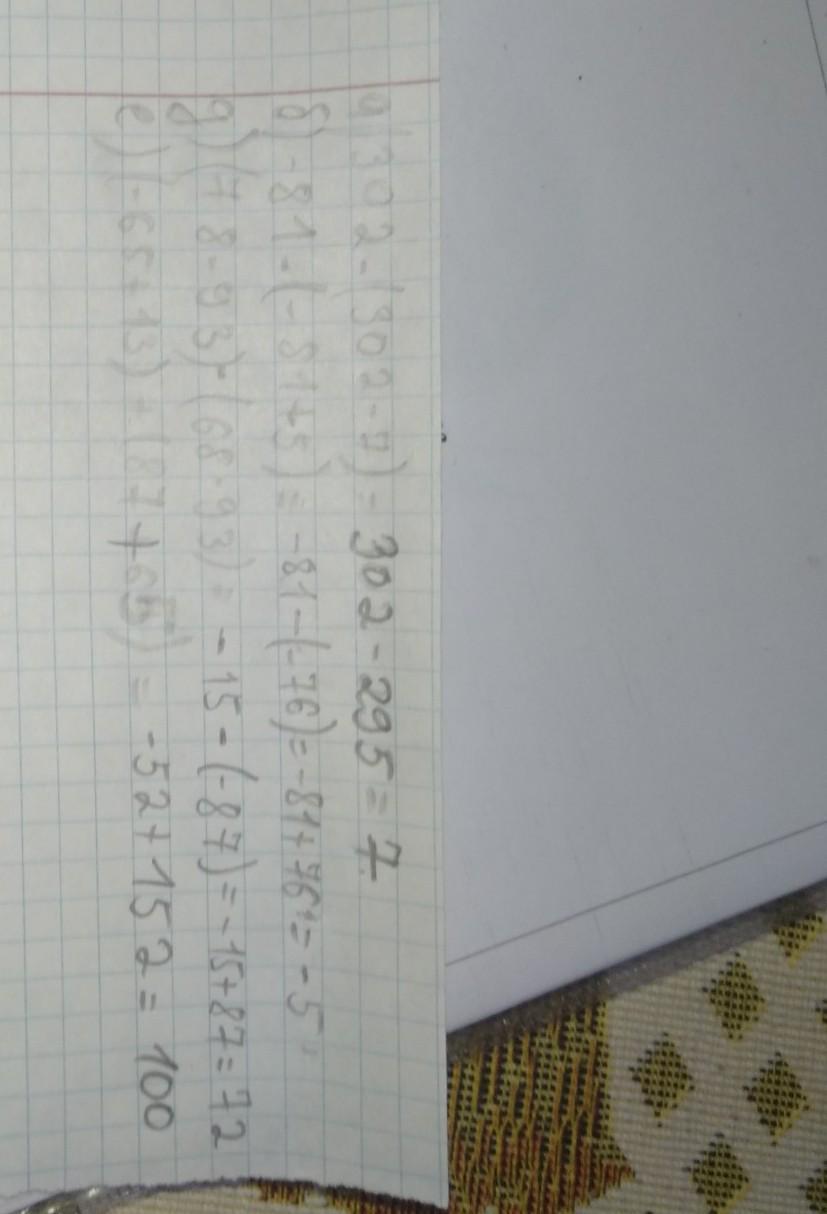 а) 302-(302-7)=302-295=7
б) -81-(-81+5)=-81-(-76)=-81+76=-5
д) (78-93)-(68-93)=-15-(-87)=-15+87=72
е) (-65+13)+(87+65)=-52+152=100